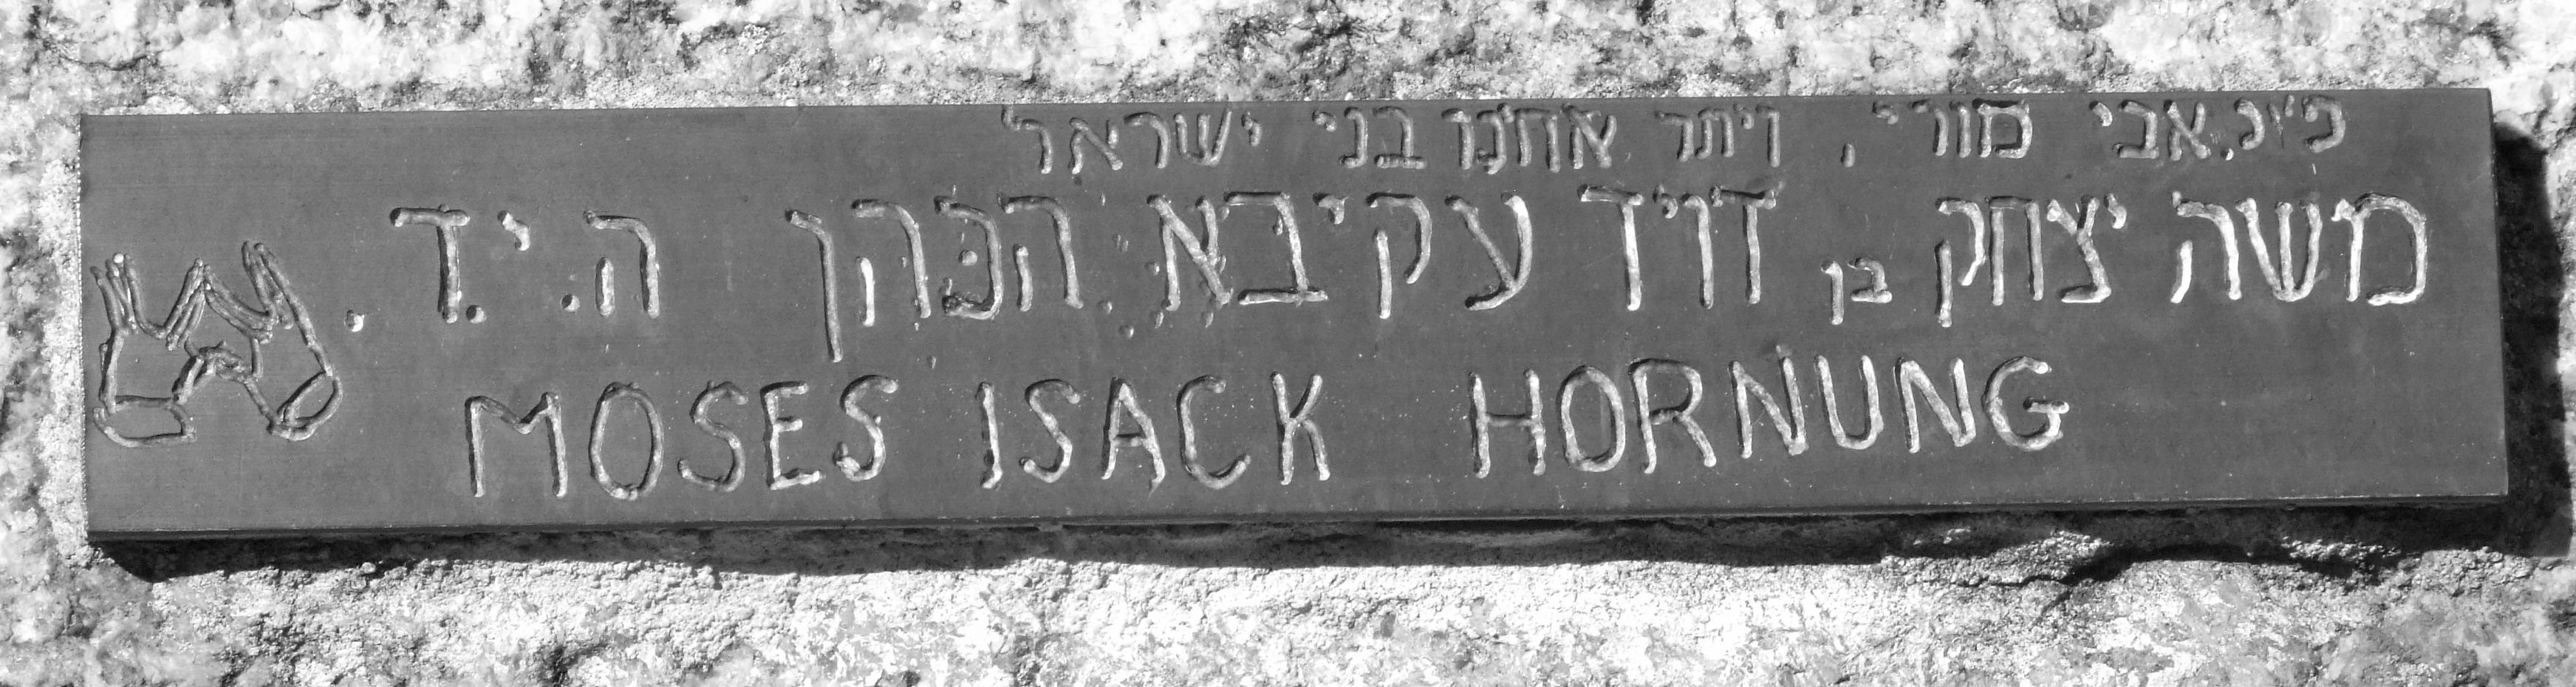 פ״נ אבי מורי. ויתר אחנו בני ישראל
משה יצחק בן דויד עקיבא הכהן ה.י.ד.
MOSES ISACK HORNUNG